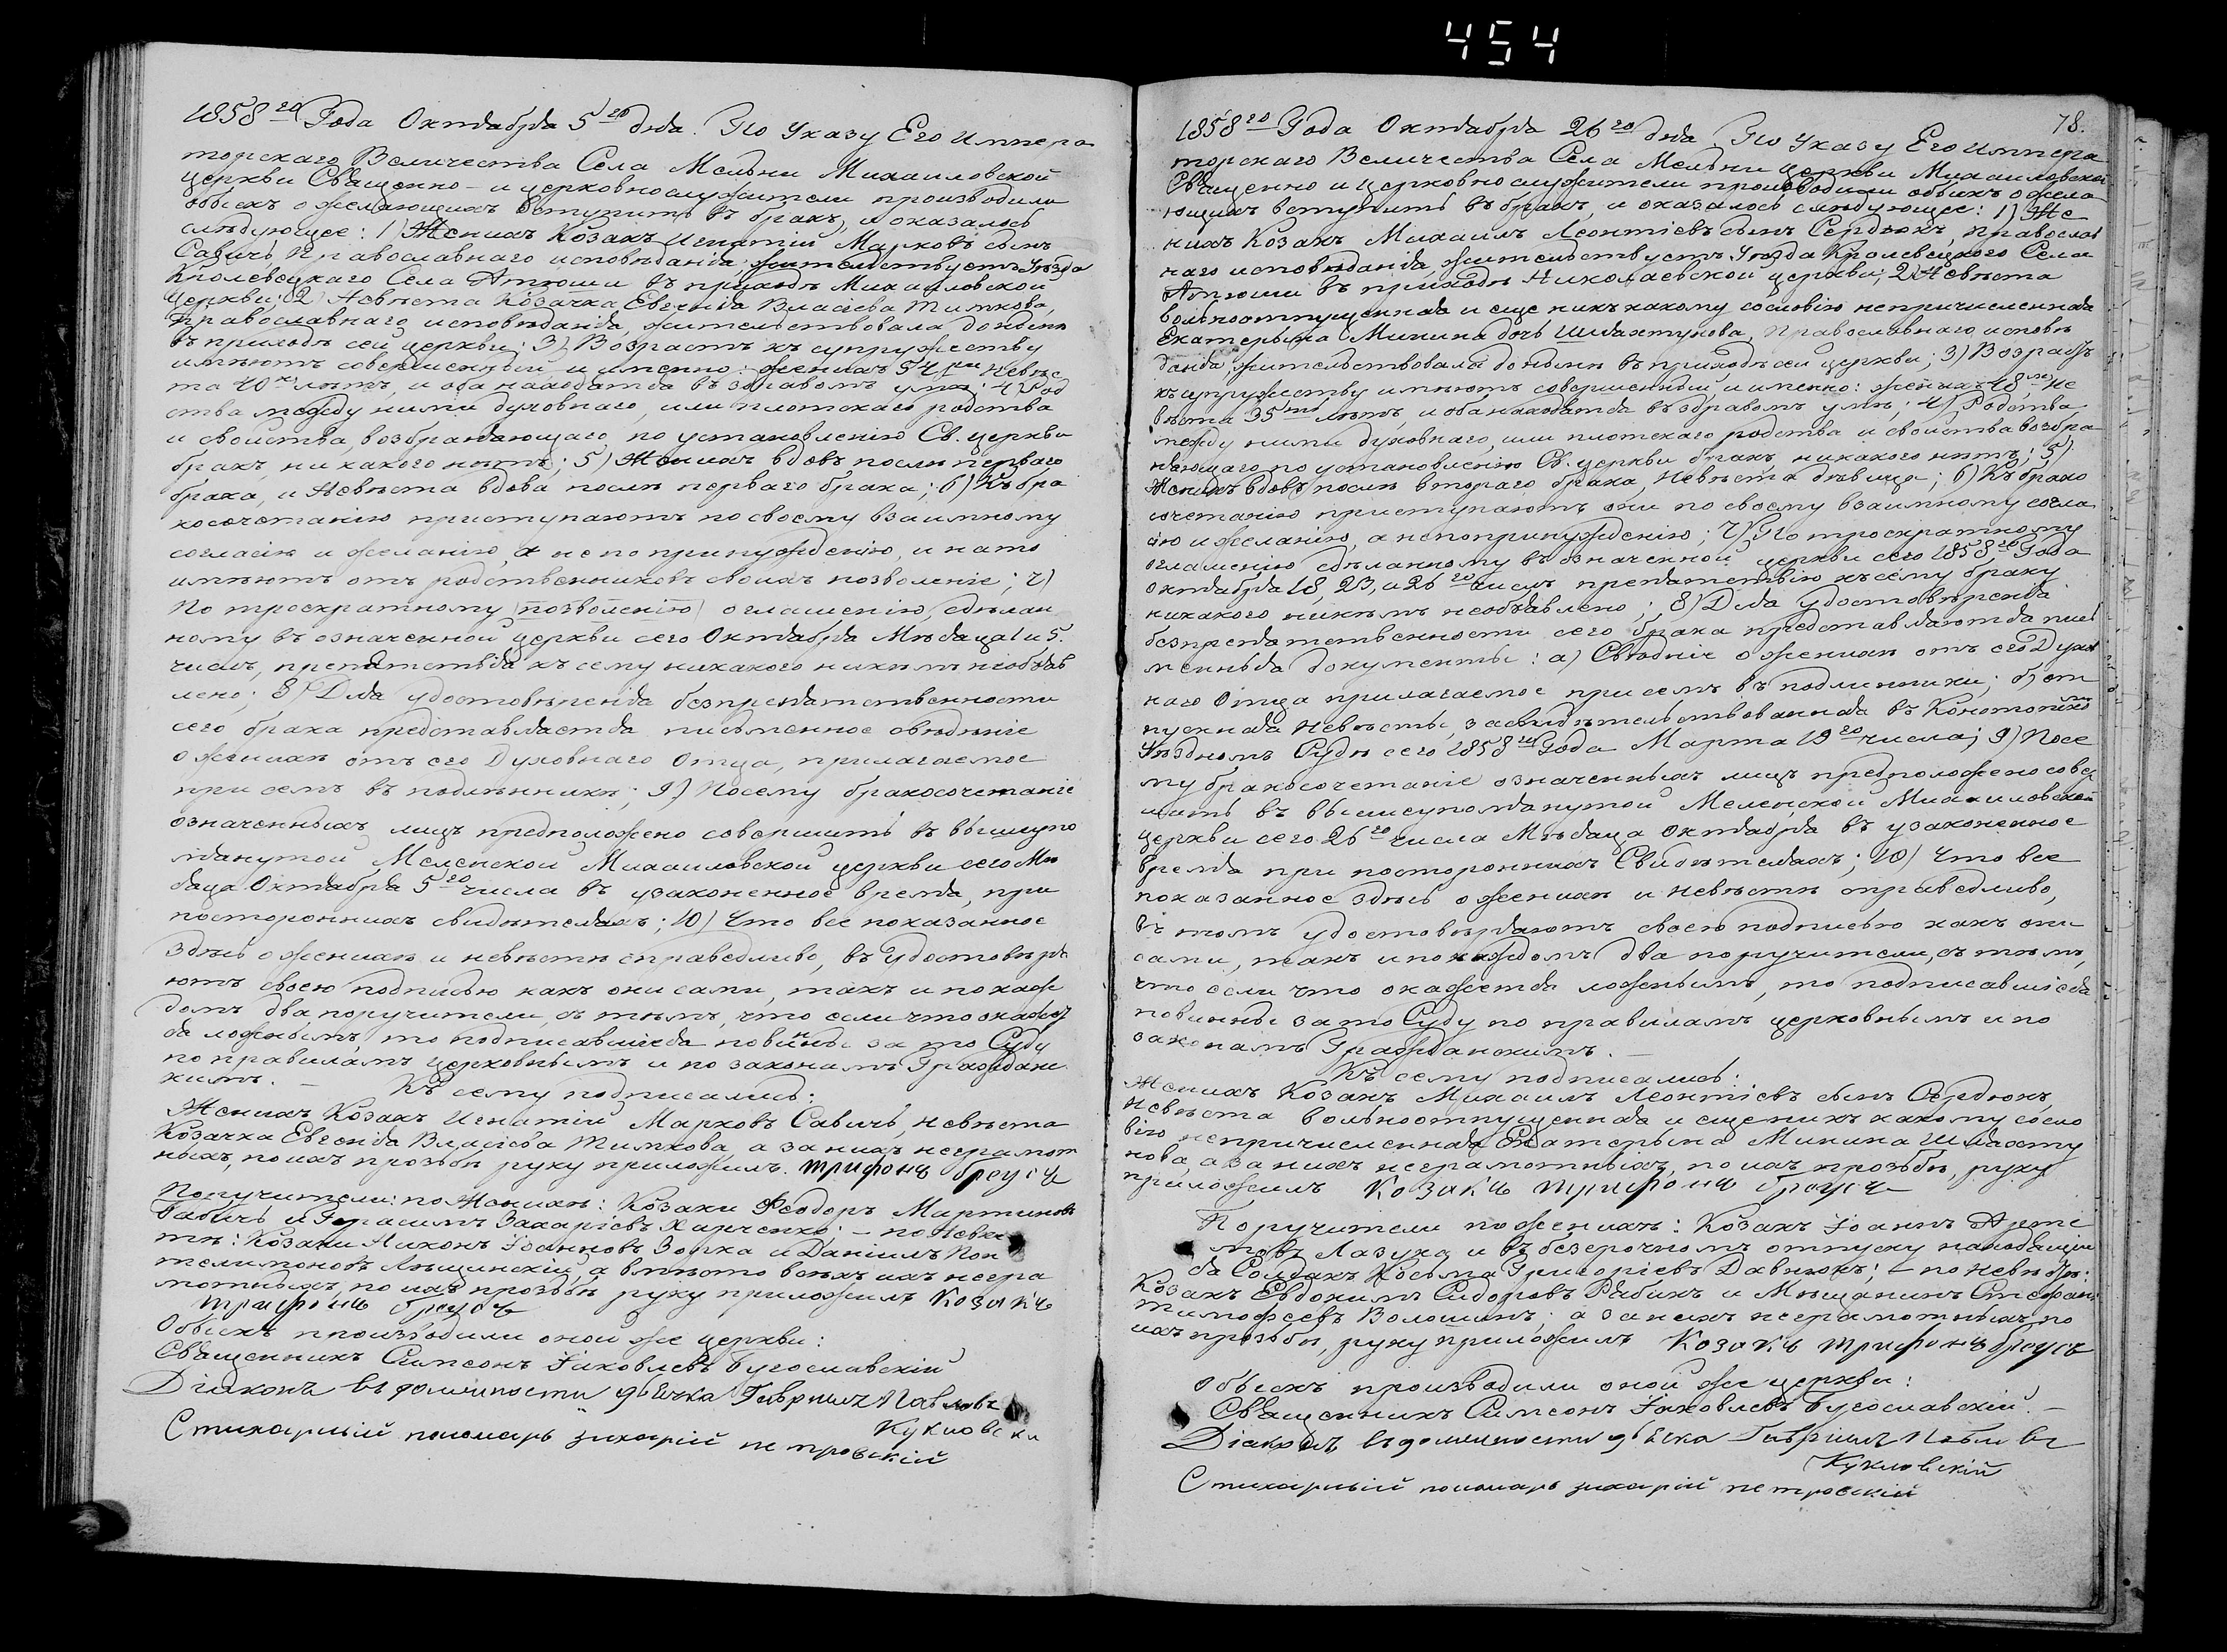 454
1858го Года Октября 5го дня. По Указу Его Импера
торскаго Величества Села Мельни Михаиловской
церкви Священно- и церковнослужители производили
обыскъ о желающихъ вступить въ бракъ, и оказалось
слѣдующее: 1) Женихъ Козакъ Игнатій Марковъ сынъ
Савичь, Православнаго исповѣданія, жительствуетъ Уѣзда
Кролевецкаго Села Атюши въ приходѣ Михаиловской
церкви; 2) Невѣста Козачка Евгенія Власіева Тимкова,
Православнаго исповѣданія, жительствовала доныне
въ приходѣ сей церкви; 3) Возрастъ къ супружеству
имѣютъ совершенный и именно: женихъ 54 Невѣс
та 40 лѣтъ, и оба находятся въ здравомъ умѣ; 4) Род
ства между ними духовнаго, или плотскаго родства
и свойства, возбраняющаго по установленію Св. церкви
бракъ, никакого нѣтъ; 5) Женихъ вдовъ послѣ перваго
брака, и Невѣста вдова послѣ перваго брака; 6) Къ бра
косочетанію приступаютъ по своему взаимному
согласію и желанію, а не по принужденію, и на то
имѣютъ отъ родственниковъ своихъ позволеніе; 7)
По троекратному (позволенію) оглашенію, сдѣлан
ному въ означенной церкви сего Октября Мѣсяца 1 и 5.
числъ, препятствія къ сему никакого никѣмъ необъяв
лено; 8) Для удостовѣренія безпрепятственности
сего брака представляется письменное свѣдѣніе
о женихѣ отъ его Духовнаго Отца, прилагаемое
при семъ въ подлинникѣ; 9) Посему бракосочетаніе
означенныхъ лицъ предположено совершить въ вышеупо
мянутой Меленской Михаиловской церкви сего Мѣ
сяца Октября 5го числа въ узаконенное время, при
постороннихъ свидѣтеляхъ; 10) Что все показанное
здѣсь о женихѣ и невѣстѣ справедливо, въ Удостовѣря
ютъ своею подписью какъ они сами, такъ и по каж
домъ два поручители, съ тѣмъ, что если что окажет
ся ложнымъ, то подписавшіеся повинны за то Суду
по правиламъ церковнымъ и по законамъ Граждан
кимъ. — Къ сему подписались:
Женихъ Козакъ Игнатій Марковъ Савичь, невѣста
Козачка Евгенія Власіева Тимкова, а за нихъ неграмот
ныхъ, по ихъ прозьбѣ руку приложилъ. Трифонъ Броусъ
Поручители: по Женихѣ: Козаки Феодоръ Мартиновъ
Бабичь и Герасимъ Захаріевъ Харченко; — по Невѣс
тѣ: Козаки Никонъ Іоанновъ Зорка и Даніилъ Пан
телимоновъ Лещинскій, а вмѣсто всѣхъ ихъ негра
мотныхъ, по ихъ прозьбѣ руку приложилъ Козакъ
Трифонъ Броусъ
Обыскъ производили оной же церкви:
Священникъ Симеонъ Іаковлевъ Бугославскій
Діаконъ въ должности дьячка Гавриилъ Павловъ
Кукловскій
Стихарный пономарь Захарій Петровскій
78.
1858го Года Октября 26го дня По Указу Его Импера
торскаго Величества Села Мельни церкви Михаиловской
Священно и церковнослужители производили обыскъ о жела
ющихъ вступить въ бракъ, и оказалось слѣдующее: 1) Же
нихъ Козакъ Михаилъ Леонтіевъ сынъ Сердюкъ, православ
наго исповѣданія, жительствуетъ Уѣзда Кролевецкого Села
Атюши въ приходѣ Николаевской церкви; 2) Невѣста
вольноотпущенная и еще никъ какому сословію непричисленная
Екатерина Минина дочь Шляхтунова, Православнаго исповѣ
данія, жительствовала доныне въ приходѣ сей церкви; 3) Возрастъ
къ супружеству имѣютъ совершенный, и именно: женихъ 48 Не
вѣста 35 лѣтъ, и оба находятся въ здравомъ умѣ; 4) Родства
между ними духовнаго, или плотскаго родства и свойства возбра
няющаго по установленію Св. церкви бракъ, никакого нѣтъ; 5)
Женихъ вдовъ послѣ втораго брака, Невѣста дѣвица; 6) Къ брако
сочетанію приступаютъ они по своему взаимному согла
сію и желанію, а непопринужденію; 7) По троекратному
оглашенію сдѣланному въ означенной церкви сего 1858го Года
Октября 18, 23, и 26го числъ препятствію къ сему браку
никакого никѣмъ необъявлено; 8) Для удостовѣренія
безпрепятственности сего брака представляются пись
менныя документы: а) Свѣдѣніе о женихѣ отъ его Духов
наго Отца прилагаемое при семъ въ подлинники; б) от
пускная Невѣсты, засвидѣтельствованная въ Конотопском
Уѣздномъ Судѣ сего 1858го Года Марта 19го числа; 9) Посе
му бракосочетаніе означенныхъ лицъ предположено совер
шать въ вышеупомянутой Меленской Михаиловской
церкви сего 26го числа Мѣсяца Октября въ узаконенное
время при постороннихъ Свидѣтеляхъ; 10) Что все
показанное здѣсь о женихѣ и невѣстѣ справедливо,
въ томъ удостовѣряютъ своею подписью какъ они
сами, такъ и по каждомъ два поручители, съ тѣмъ,
что если что окажется ложнымъ, то подписавшіеся
повинны за то Суду по правиламъ церковнымъ и по
законамъ Гражданскимъ. —
Къ сему подписались:
Женихъ Козакъ Михаилъ Леонтіевъ сынъ Сердюкъ,
Невѣста вольноотпущенная и еще никъ какому сосло
вію непричисленная Екатерина Минина Шляхту
нова, а за нихъ неграмотныхъ, по ихъ прозьбѣ, руку
приложилъ Козакъ Трифонъ Броусъ
Поручители по женихѣ: Козакъ Іоаннъ Арте
мовъ Лазука и въ безсрочномъ отпуску находящій
ся Солдатъ Косьма Григоріевъ Давыдокъ; — по невѣстѣ:
Козакъ Евдокимъ Сидоровъ Рябикъ и Мѣщанинъ Стефанъ
Тимофеевъ Волошинъ; а за нихъ неграмотныхъ, по
ихъ прозьбѣ, руку приложилъ Козакъ Трифонъ Броусъ
Обыскъ производили оной же церкви:
Священникъ Симеонъ Іаковлевъ Бугославскій. —
Діаконъ въ должности дьячка Гавриилъ Павловъ
Кукловскій
Стихарный пономарь Захарій Петровскій